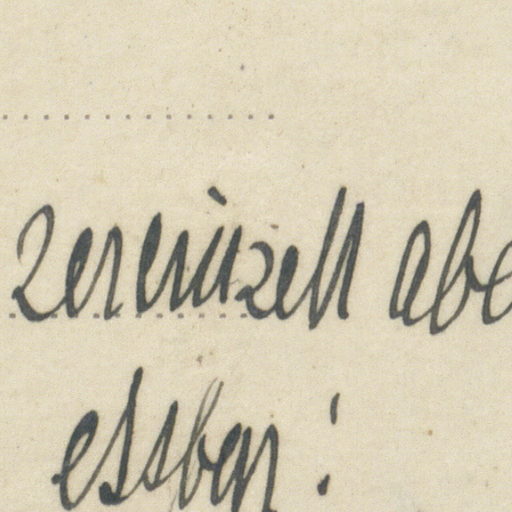 vereinzelt abe
essbar!